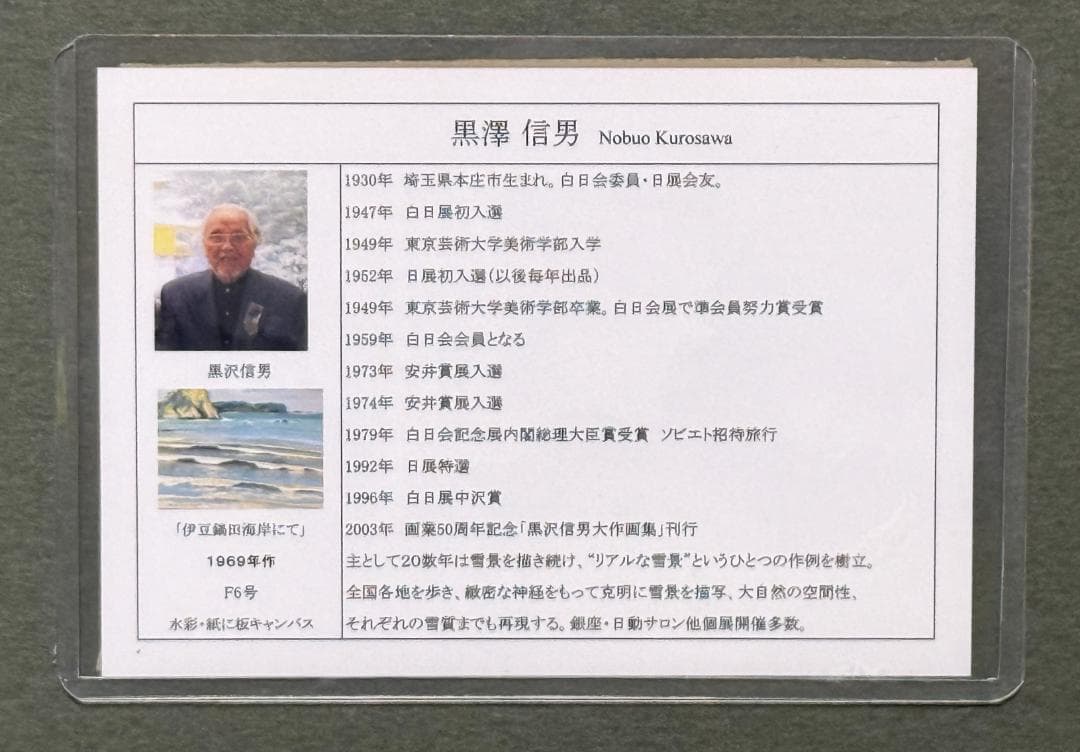 黒澤 信男 Nobuo Kurosawa
1930年 埼玉県本庄市生まれ。白日会委員・日展会友。
1947年 白日展初入選
1949年 東京芸術大学美術学部入学
1952年 日展初入選（以後毎年出品）
1949年 東京芸術大学美術学部卒業。白日会展で準会員努力賞受賞
1959年 白日会会員となる
1973年 安井賞展入選
1974年 安井賞展入選
1979年 白日会記念展内閣総理大臣賞受賞 ソビエト招待旅行
1992年 日展特選
1996年 白日展中沢賞
2003年 画業50周年記念「黒沢信男大作画集」刊行
主として20数年は雪景を描き続け、“リアルな雪景”というひとつの作例を樹立。
全国各地を歩き、緻密な神経をもって克明に雪景を描写、大自然の空間性、
それぞれの雪質までも再現する。銀座・日動サロン他個展開催多数。
黒沢信男
「伊豆鍋田海岸にて」
1969年作
F6号
水彩・紙に板キャンバス